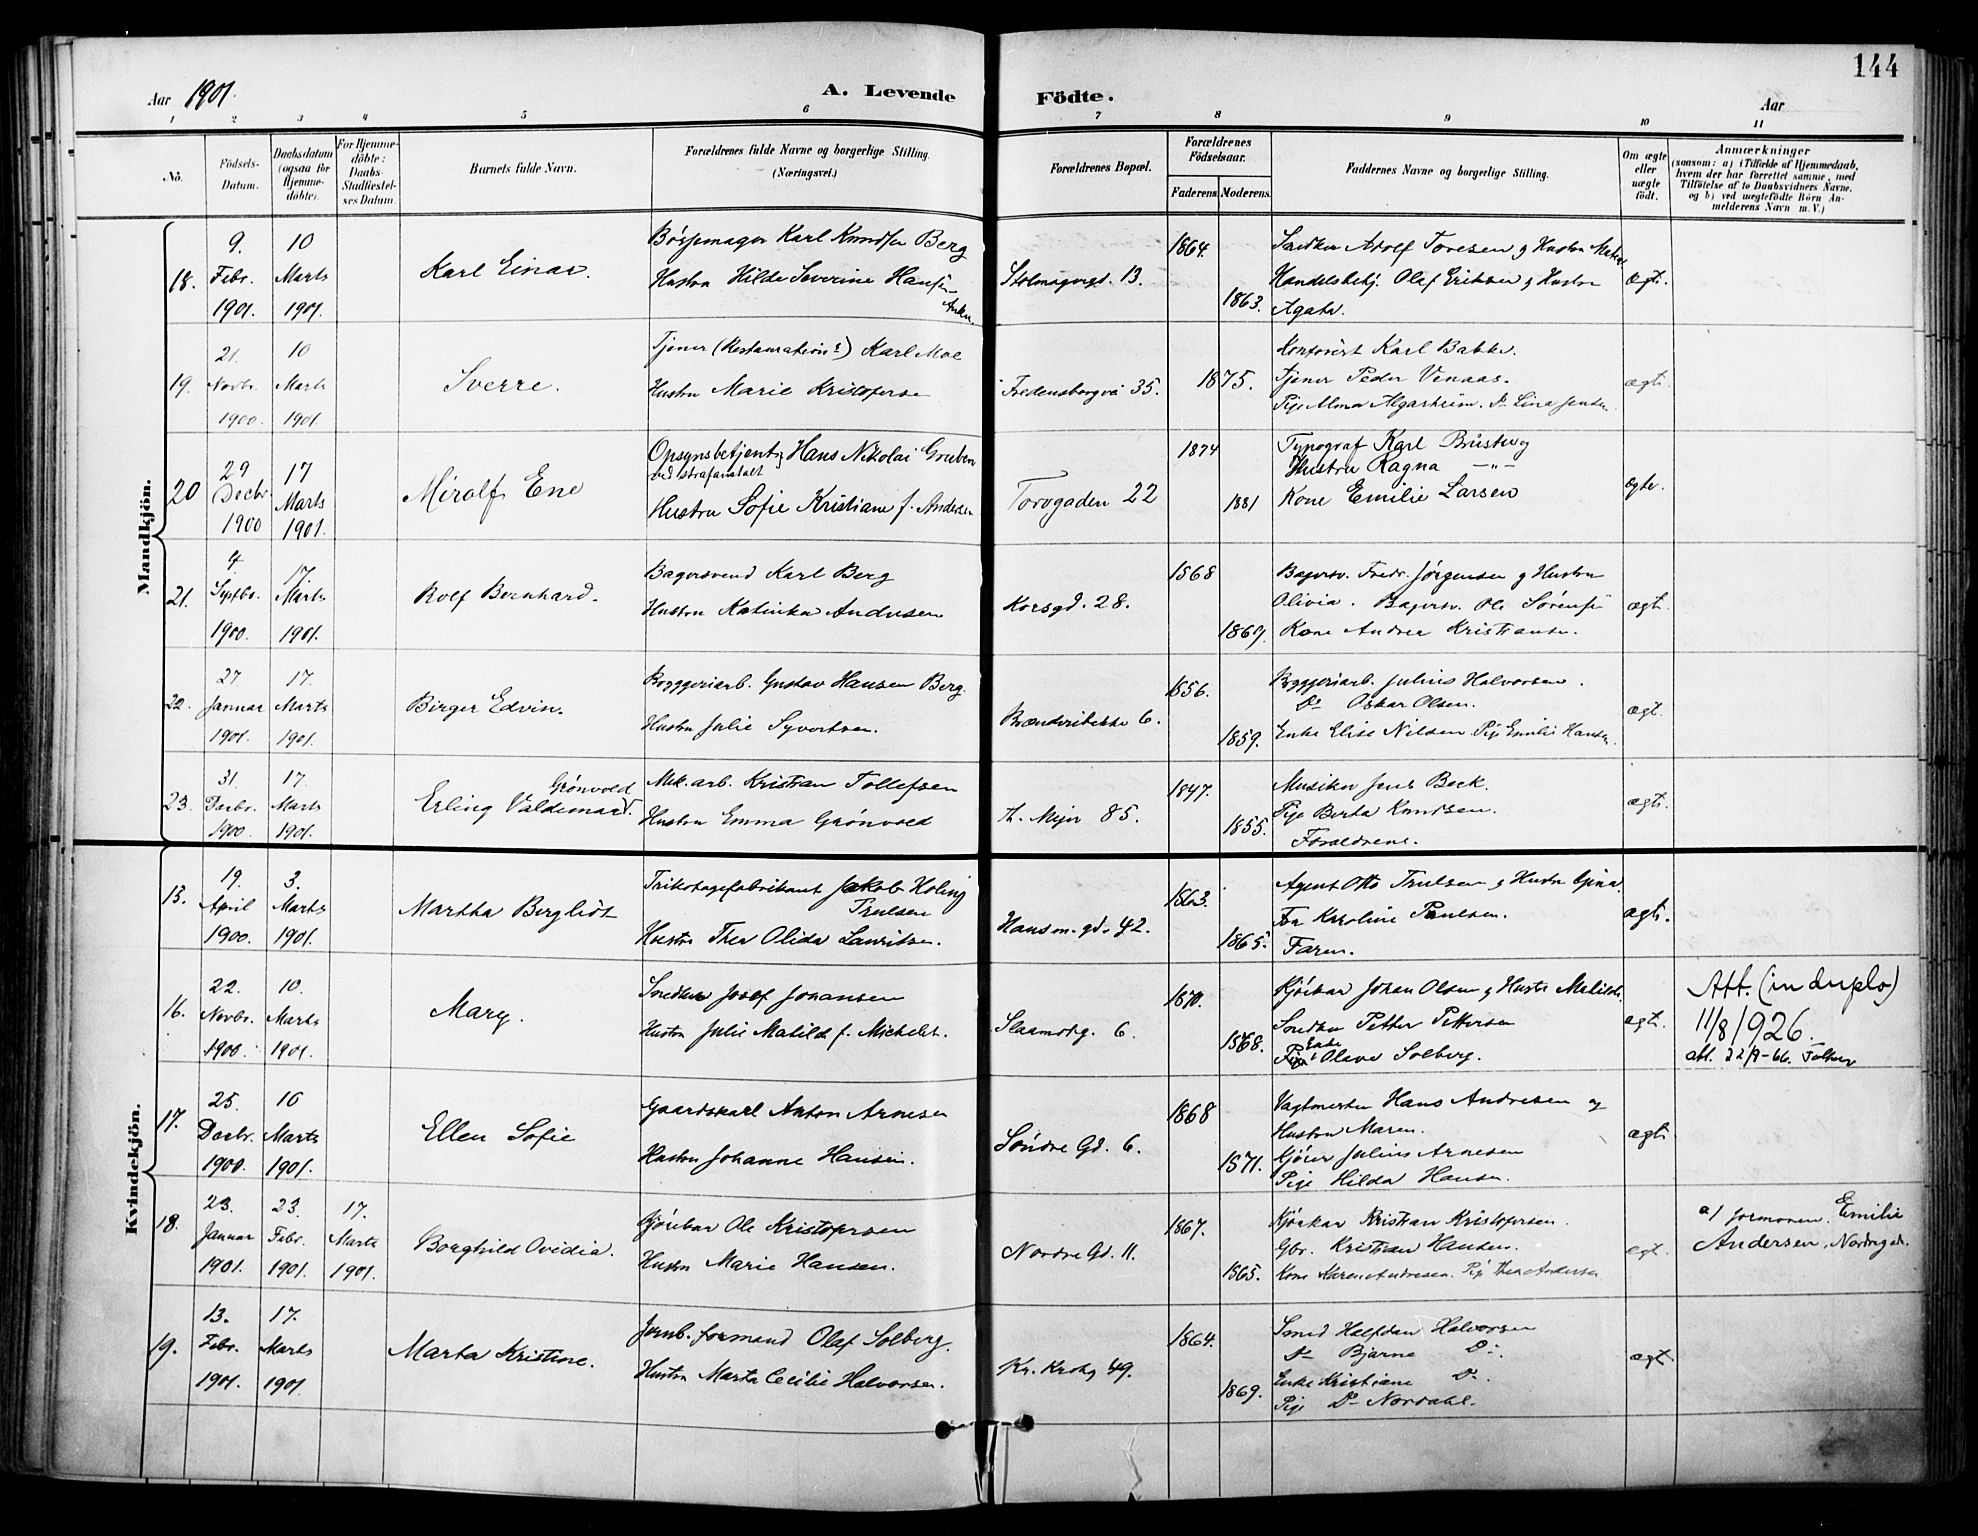 144
Aar 1901. A. Levende Födte. Aar
1 2 3 4 5 6 7 8 9 10 11
No. Födsels-Datum. Daabsdatum (ogsaa for Hjemmedöbte). For Hjemmedöbte: Daabs-Stadfestelses Datum. Barnets fulde Navn. Forældrenes fulde Navne og borgerlige Stilling. (Næringsvei.) Forældrenes Bopæl. Forældrenes Födselsaar. Faderens. Moderens. Faddernes Navne og borgerlige Stilling. Om ægte eller uægte födt. Anmærkninger (saasom: a) i Tilfælde af Hjemmedaab, hvem der har forrettet samme, med Tilföielse af to Daabsvidners Navne, og b) ved uægtefödte Börn Anmelderens Navn m. V.)
Mandkjön.
18. 9. Febr. 1901. 10 Marts 1901. Karl Einar.
Bøssemager Karl Knudsen Berg
Hustru Hilda Severine Hansen
1864.
1863.
Snedker Adolf Toresen og Hustru
Handelsbetj. Olaf Eriksen og Hustru
Agata.
ægte.
19. 21. Novbr. 1900. 10 Marts 1901. Sverre.
Tjener (Restauration) Karl Moe
Hustru Marie Kristofersen
Fredensborgvei 35. 1875.
Kontorist Karl Bakke.
Tjener Peder Venaas.
Pige Alma Algarheim. Do Lina Jensen
ægte.
20 29 Decbr 1900 17 Marts 1901. Mirolf Ene
Opsynsbetjent Hans Nikolai Gruben
ved strafanstalt
Hustru Sofie Kristiane f. Andersen
Torvgaden 22 1874
1881
Typograf Karl
Hustru Ragna —"—
Kone Emilie Larsen
ægte.
21. 4. Septbr. 1900. 17. Marts 1901. Rolf Bernhard.
Bagersvend Karl Berg
Hustru Katinka Andersen
Korsgd. 28. 1868
1869.
Bagersv. Fredr. Jørgensen og Hustru
Olivia. Bagersv. Ole Sørensen
Kone Andrea Kristiansen.
ægte.
22. 27 Januar 1901. 17. Marts 1901. Birger Edvin.
Bryggeriarb. Gustav Hansen Berg.
Hustru Julie Syvertsen.
6. 1856.
1859.
Bryggeriarb. Julius Halvorsen.
Do Oskar Olsen.
Enke Elise Nilsen. Pige Emilie Hansen.
ægt.
23. 31. Decbr. 1900. 17. Marts 1901. Erling Valdemar Grønvold.
Mek. arb. Kristian Tollefsen
Hustru Emma Grønvold
Th. Mejer 85. 1847.
1855.
Musiker Jens Beck.
Pige Berta Knudsen.
Forældrene.
ægte.
Kvindekjön.
15. 19. April 1900. 3. Marts 1901. Martha Bergliot
Trikotagefabrikant Jakob
Trulsen
Hustru Thea Olida Lauritsen.
Hansm. gd. 42. 1863.
1865.
Agent Otto Trulsen og Hustru Gina.
Fru Karoline Paulsen.
Faren.
ægte.
16. 22. Novbr. 1900. 10. Marts 1901. Mary.
Snedker Josef Johansen
Hustru Julie Matilde f. Michelst.
Slaamotg. 6. 1870.
1868.
Kjørekar Johan Olsen og Hustru Matilde.
Snedker Petter Pettersen
Enke Olava Solberg.
ægte.
Att. (in duplo)
11/8 1926.
att. 22/9-66.
17. 25. Decbr. 1900. 10 Marts 1901. Ellen Sofie
Gaardskarl Anton Arnesen
Hustru Johanne Hansen.
Søndre Gd. 6. 1868
1871.
Vagtmester Hans Andresen og
Hustru Maren.
Kjører Julius Arnesen
Pige Hilda Hansen.
ægte
18. 23. Januar 1901. 23. Febr. 1901. 17. Marts 1901. Borghild Ovidia.
Kjørekar Ole Kristofersen
Hustru Marie Hansen.
Nordre Gd. 11. 1867.
1865.
Kjørekar Kristian Kristofersen.
Gbr. Kristian Hansen.
Kone Karen Andresen. Pige Thea Andersen
ægt.
a) Jormoren. Emilie
Andersen, Nordregd.
19. 13. Febr. 1901. 17. Marts 1901 Marta Kristine.
Jernb. formand Olaf Solberg.
Hustru Marta Cecilie Halvorsen.
Kr. Krohg 49. 1864.
1869.
Smed Halfdan Halvorsen
Do Bjarne Do.
Enke Kristiane Do.
Pige Do Nordahl.
ægt.